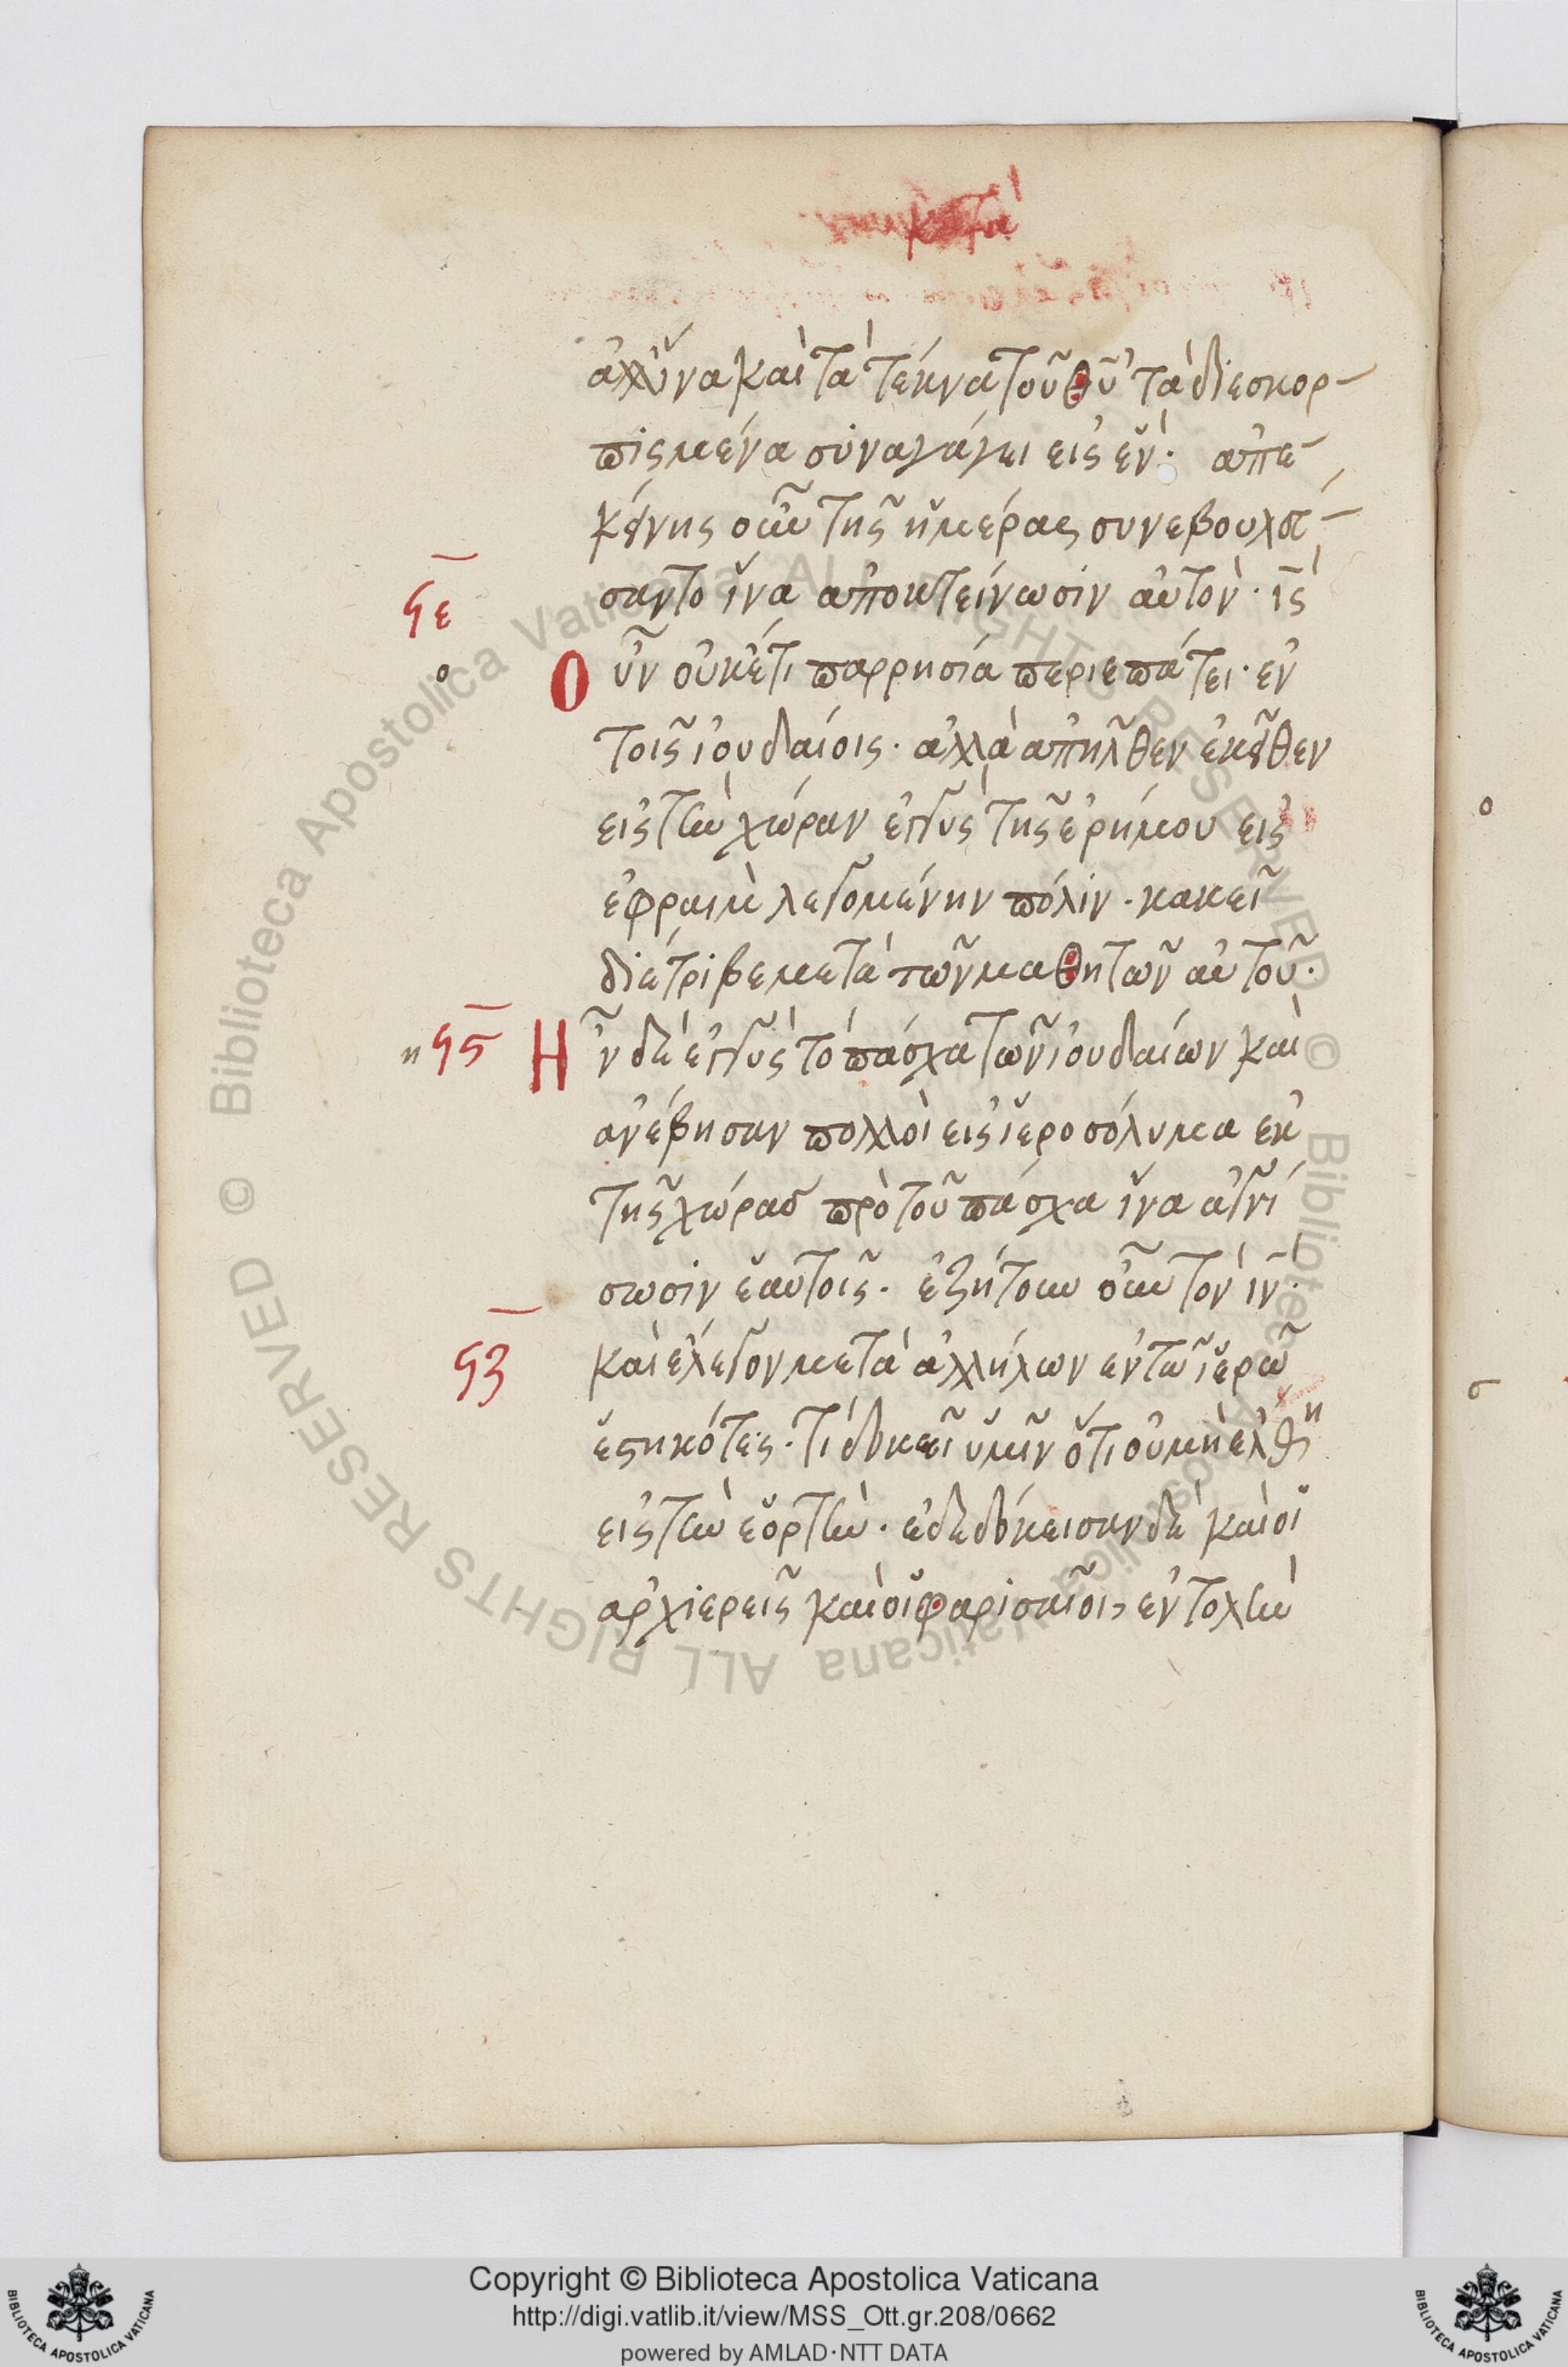 κατὰ
ἀλλἵνα καὶ τὰ τέκνα τοῦ θῦ τὰ διεσκορ-
πισμένα συναγάγει εἰς ἕν· ἀπε-
κείνης οὖν τῆς ἡμέρας συνεβουλά-
σαντο ἵνα ἀποκτείνωσιν αὐτόν· ις
ϟε
ο
Ο ὖν οὐκέτι παρρησία περιεπάτει· ἐν
τοῖς ἰουδαίοις· ἀλλὰ ἀπῆλθεν ἐκεῖθεν
εἰς τὴν χώραν ἐγγὺς τῆς ἐρήμου εἰς
ἐφραὶμ λεγομένην πόλιν· κακεῖ
διέτριβε μετὰ τῶν μαθητῶν αὐτοῦ·
η ϟϛ Ἦν δὲ ἐγγὺς τὸ πάσχα τῶν ἰουδαίων καὶ
ἀνέβησαν πολλοὶ εἰς ἱεροσόλυμα ἐκ
τῆς χώρας πρὸ τοῦ πάσχα ἵνα ἁγνί
σωσιν ἑαυτοῖς· ἐζήτουν οὖν τὸν ιν·
ϟζ
καὶ ἔλεγον μετὰ ἀλλήλων ἐν τῶ ἱερῶ
ἑστηκότες· τί δοκεῖ ὑμῖν ὅτι οὐ μὴ ἔλθη
εἰς τὴν ἑορτὴν· ἐδεδώκεισαν δὲ καὶ οἱ
ἀρχιερεῖς καὶ οἱ φαρισαῖοι, ἐντολὴν
ο
σ
Copyright © Biblioteca Apostolica Vaticana
http://digi.vatlib.it/view/MSS_Ott.gr.208/0662
powered by AMLAD·NTT DATA
BIBLIOTECA APOSTOLICA VATICANA
BIBLIOTECA APOSTOLICA VATICANA
© Biblioteca Apostolica Vaticana ALL RIGHTS RESERVED
© Biblioteca Apostolica Vaticana ALL RIGHTS RESERVED